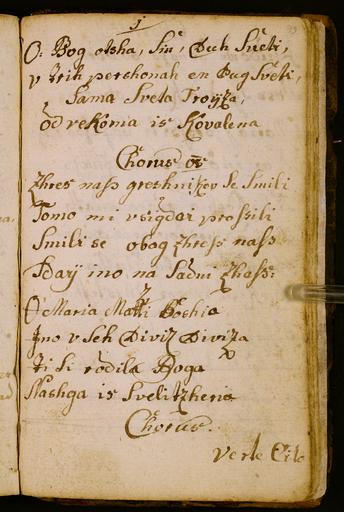 1
O: Bog otsha, Sin, Duh Sveti,
v trih pershonah en Bug Sveti,
Sama Sveta Troyza,
od rekonia is Kovalena
Chorus os
zhres nass greshnikov Se Smili
Tomo mi vsigdar prossili
Smili se obog zhress nass
Sday ino na Sadni zhass:
O Maria Matti Boshia
Ino vseh Diviz Diviza
Ti Si rodila Boga
Nashga is Svelitzhenia
Chorus.